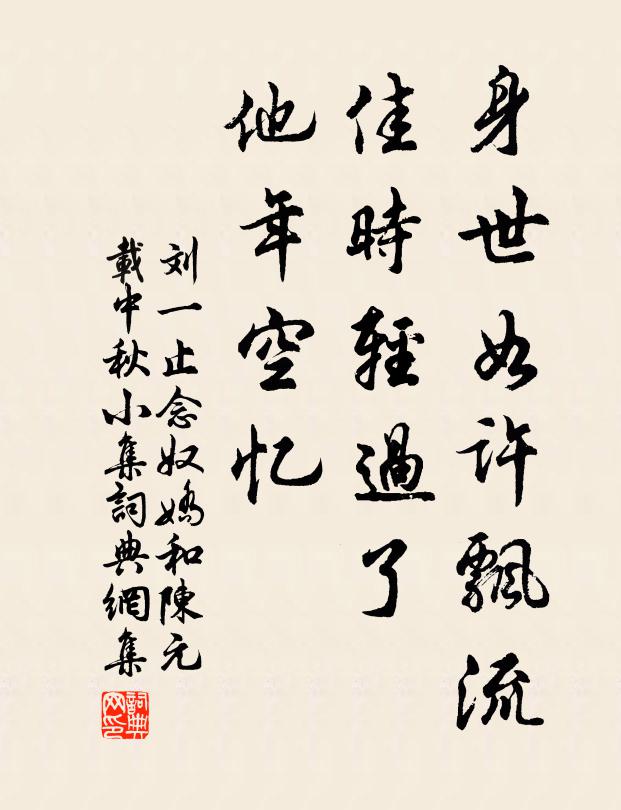 身世如许飄流
佳時輕過了
他年空忆
刘一止念奴嬌和陳元
載中秋小集詞典網集
詞典
网印